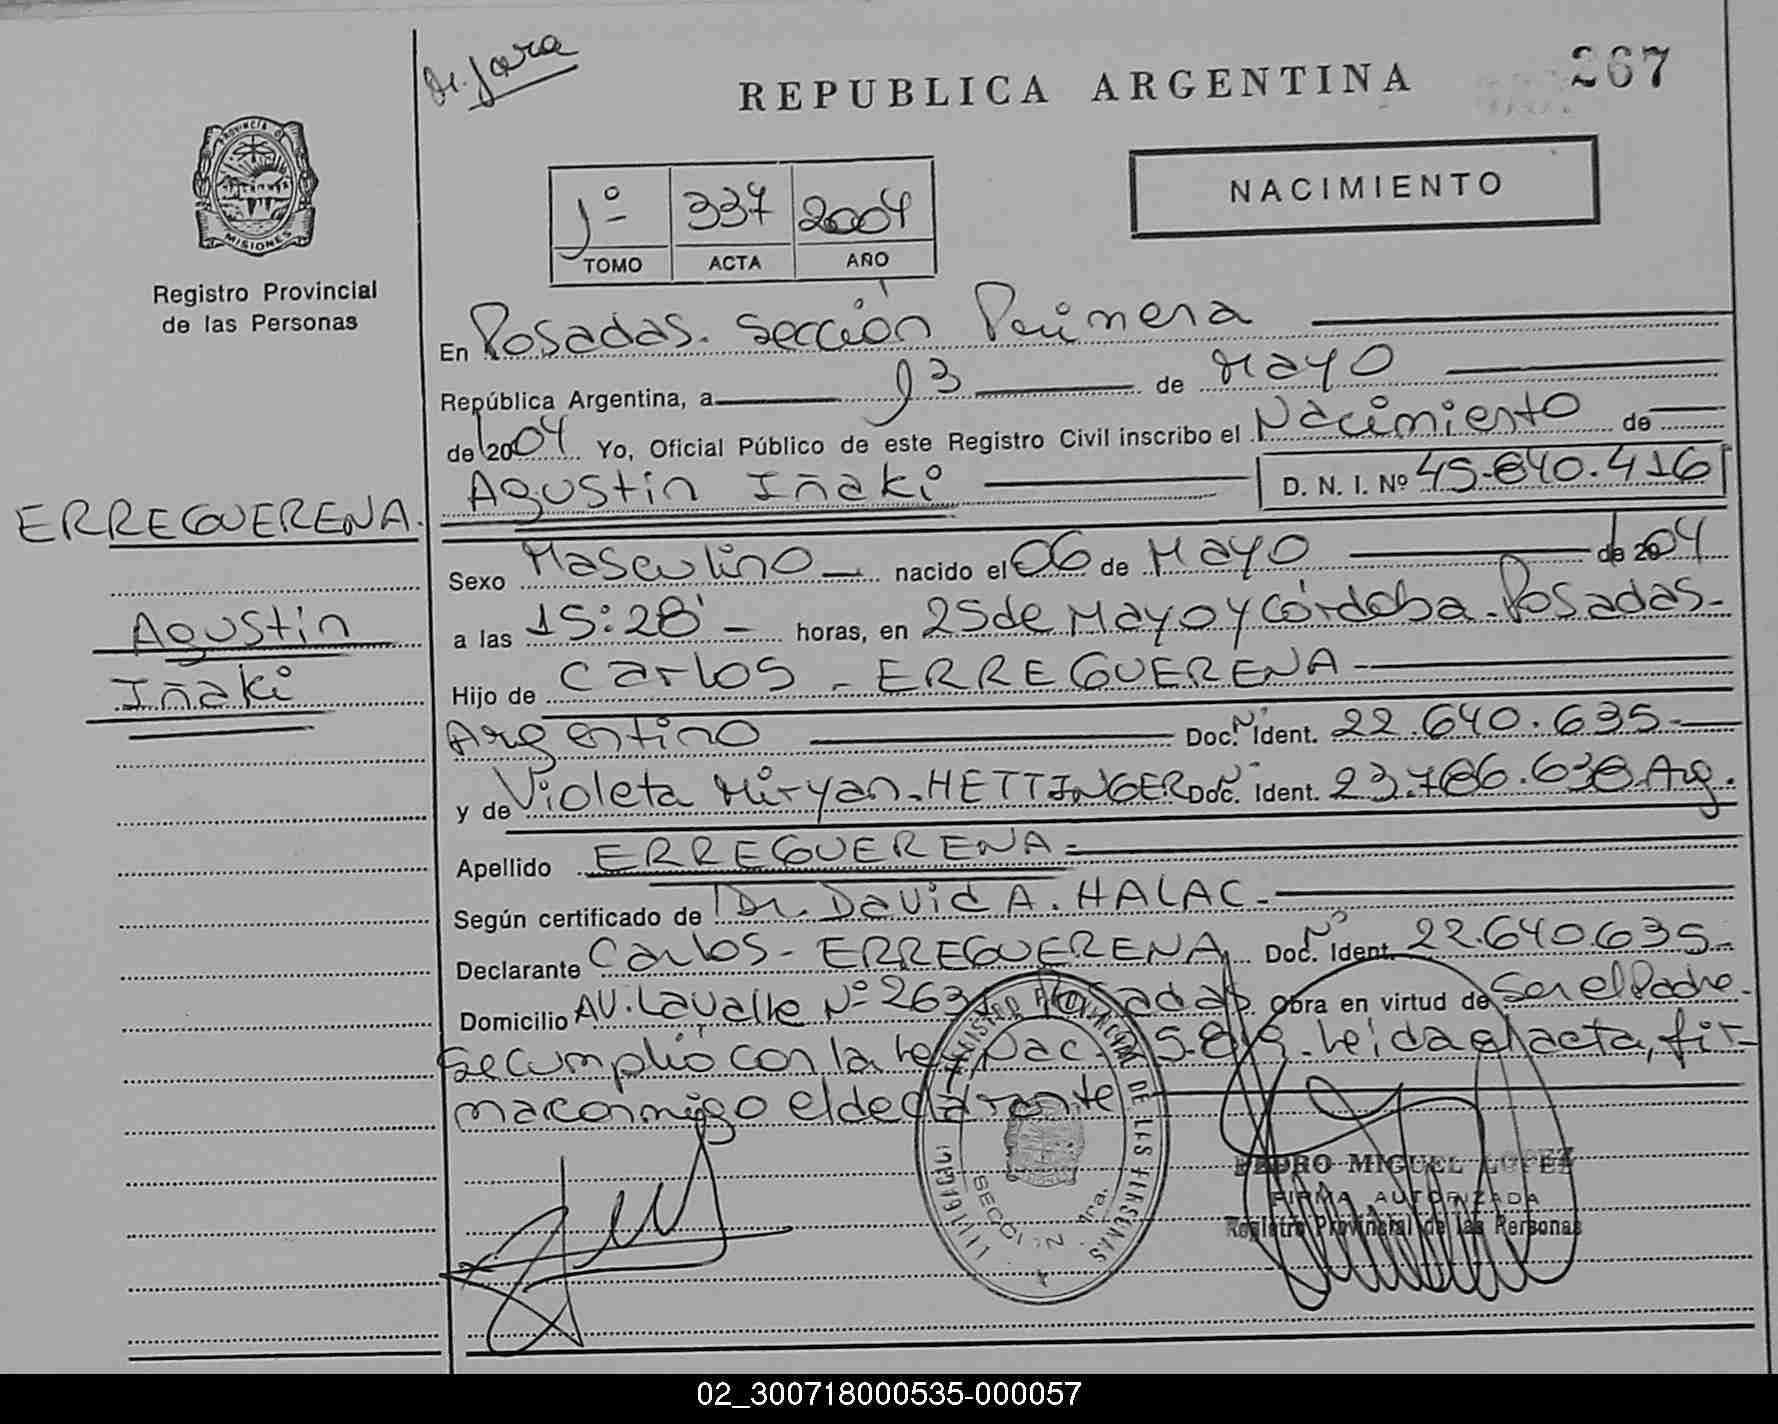 Dr. Jara
REPUBLICA ARGENTINA
267
PROVINCIA DE
MISIONES
Registro Provincial
de las Personas
1º 337 2004
TOMO ACTA AÑO
NACIMIENTO
En Posadas. Sección Primera
República Argentina, a 13 de Mayo
de 2004 Yo, Oficial Público de este Registro Civil inscribo el Nacimiento de
Agustin Iñaki D. N. I. Nº 45.840.416
ERREGUERENA.
Agustin
Iñaki
Sexo Masculino nacido el 06 de Mayo de 2004
a las 15:28' horas, en 25 de Mayo y Córdoba - Posadas -
Hijo de Carlos - ERREGUERENA -
Argentino Doc. Nº Ident. 22.640.635 -
y de Violeta Miryan - HETTINGER Doc. Nº Ident. 23.786.638 Arg.
Apellido ERREGUERENA =
Según certificado de Dr. David A. HALAC -
Declarante Carlos - ERREGUERENA Doc. Nº Ident. 22.640.635 -
Domicilio AV. Lavalle Nº 263 Posadas Obra en virtud de Ser el Padre -
Se cumplió con la ley Nac. Leída el acta, fir-
ma conmigo el declarante
REGISTRO PROVINCIAL DE LAS PERSONAS
SECCION 1ra.
PEDRO MIGUEL LOPEZ
FIRMA AUTORIZADA
Registro Provincial de las Personas
02_300718000535-000057